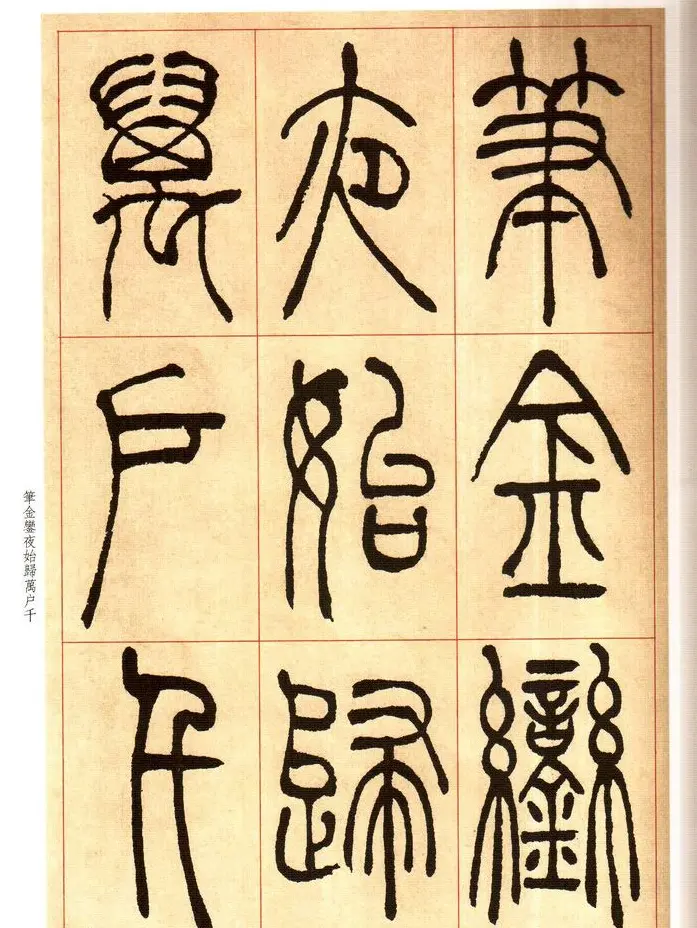 筆金鑾
夜始歸
萬户千
筆金鑾夜始歸萬户千